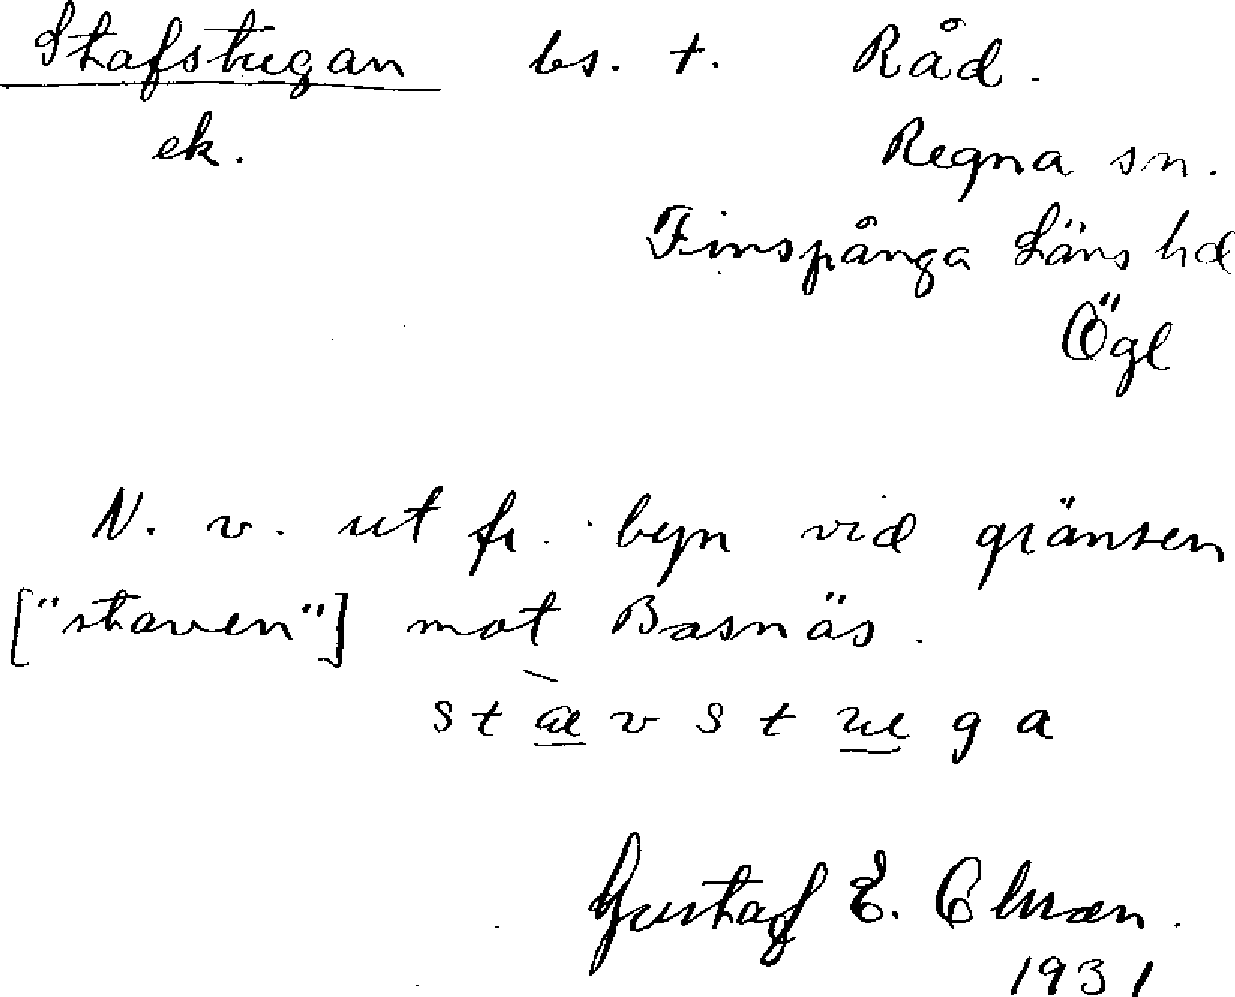 Stafstugan bs. t. Råd.
ek. Regna sn.
Finspånga Läns hd
Ögl
N. v. ut fr. byn vid gränsen
["staven"] mot Basnäs.
stavstuga
Gustaf E.
1931